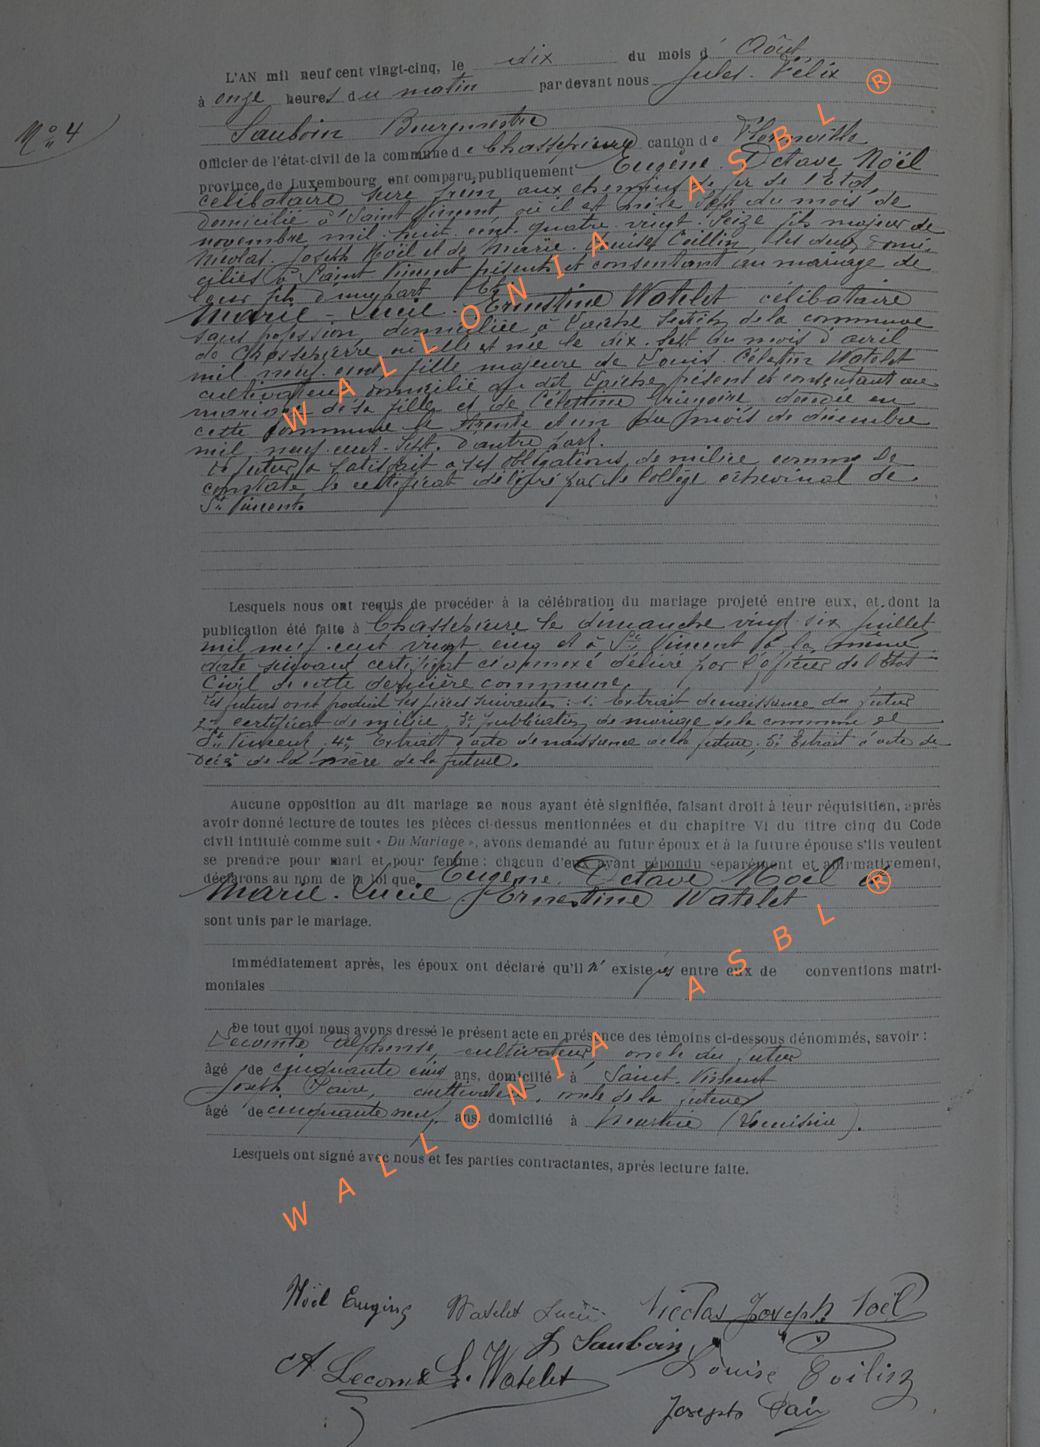 L'AN mil neuf cent vingt-cinq, le dix du mois d'Août
à onze heures du matin par devant nous Jules Félix
N° 4
Sauboin Bourgmestre
Officier de l'état-civil de la commune de Chassepierre canton de Florenville
province de Luxembourg ont comparu publiquement Eugène Octave Noël
célibataire aux chemins de fer de l'Etat,
domicilié à Saint Vincent, où il est né le sept du mois de
novembre mil huit cent quatre vingt seize fils majeur de
Nicolas Joseph Noël et de Marie Louise les deux domi
ciliés à Saint Vincent présents et consentant au mariage de
leur fils d'une part Et
Marie-Lucie Ernestine Watelet célibataire
sans profession, domiciliée à section de la commune
de Chassepierre où elle est née le dix sept du mois d'avril
mil neuf cent fille majeure de Louis Célestin Watelet
cultivateur domicilié au dit présent et consentant au
mariage de sa fille et de Célestine Grégoire décédée en
cette commune le trente et un du mois de décembre
mil neuf cent sept d'autre part.
Le futur a satisfait à ses obligations de milice comme le
constate le certificat délivré par le Collège échevinal de
St Vincent.
Lesquels nous ont requis de procéder à la célébration du mariage projeté entre eux, et dont la
publication été faite à Chassepierre le dimanche vingt six juillet
mil neuf cent vingt cinq et à St Vincent à la même
date suivant certificat ci annexé délivré par l'officier de l'Etat
Civil de cette dernière commune.
Les futurs ont produit les pièces suivantes : 1° Extrait de naissance du futur
2° certificat de milice, 3° publication de mariage de la commune de
St Vincent, 4° Extrait d'acte de naissance de la future, 5° Extrait d'acte de
décès de la mère de la future.
Aucune opposition au dit mariage ne nous ayant été signifiée, faisant droit à leur réquisition, après
avoir donné lecture de toutes les pièces ci-dessus mentionnées et du chapitre VI du titre cinq du Code
civil intitulé comme suit « Du Mariage », avons demandé au futur époux et à la future épouse s'ils veulent
se prendre pour mari et pour femme : chacun d'eux ayant répondu séparément et affirmativement,
déclarons au nom de la loi que Eugène Octave Noël &
Marie-Lucie Ernestine Watelet
sont unis par le mariage.
Immédiatement après, les époux ont déclaré qu'il n'existe pas entre eux de conventions matri-
moniales
De tout quoi nous avons dressé le présent acte en présence des témoins ci-dessous dénommés, savoir :
Lecomte Alphonse, cultivateur, oncle du futur
âgé de cinquante cinq ans, domicilié à Saint-Vincent
Joseph cultivateur, oncle de la future
âgé de cinquante neuf ans, domicilié à
Lesquels ont signé avec nous et les parties contractantes, après lecture faite.
Noël Eugène Watelet Lucie Nicolas Joseph Noël
J Sauboin
A Lecomte L. Watelet Louise
Joseph
WALLONIA ASBL ®
WALLONIA ASBL ®